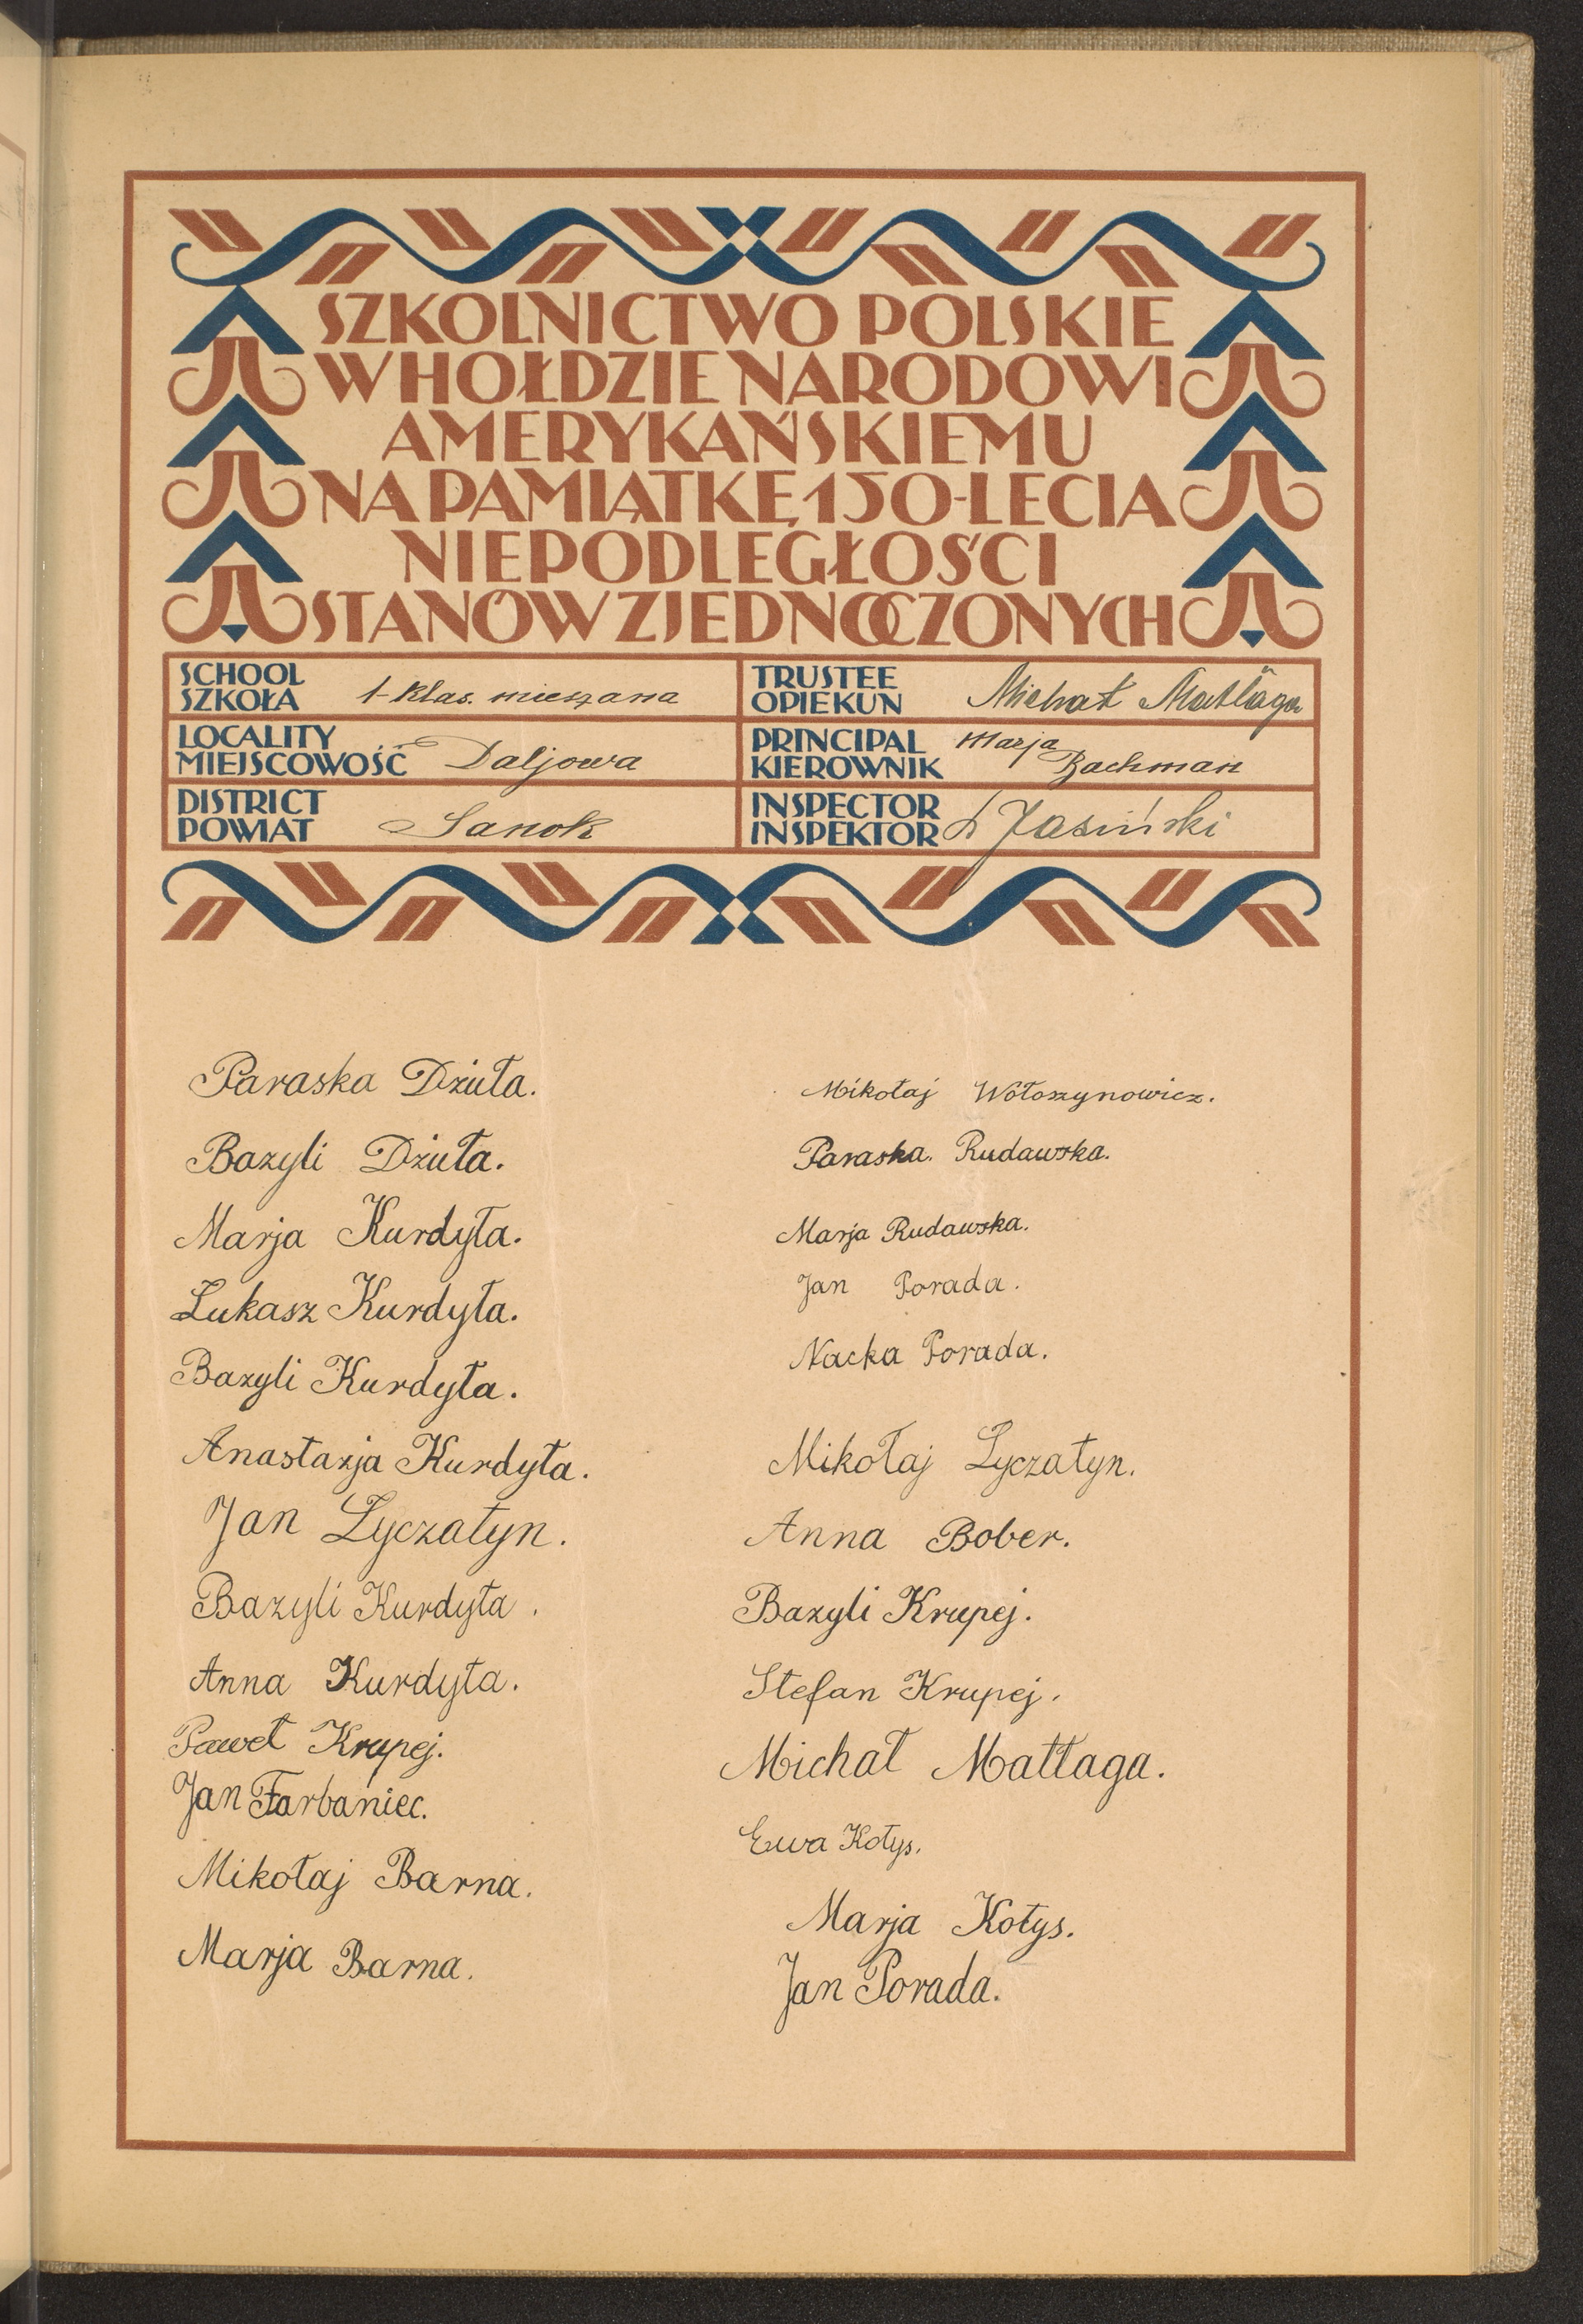 SZKOLNICTWO POLSKIE
W HOŁDZIE NARODOWI
AMERYKAŃSKIEMU
NA PAMIĄTKĘ 150-LECIA
NIEPODLEGŁOŚCI
STANÓW ZJEDNOCZONYCH
SCHOOL
SZKOŁA 1-klas. mieszana
TRUSTEE
OPIEKUN Michał Matłaga
LOCALITY
MIEJSCOWOŚĆ Daljowa
PRINCIPAL
KIEROWNIK Marja Bachman
DISTRICT
POWIAT Sanok
INSPECTOR
INSPEKTOR Jasiński
Paraska Dżuła.
Bazyli Dżuła.
Marja Kurdyła.
Łukasz Kurdyła.
Bazyli Kurdyła.
Anastazja Kurdyła.
Jan Łyczatyn.
Bazyli Kurdyła.
Anna Kurdyła.
Paweł Krupej.
Jan Farbaniec.
Mikołaj Barna.
Marja Barna.
Mikołaj Wołoszynowicz.
Paraska. Rudawska.
Marja Rudawska.
Jan Porada.
Nacka Porada.
Mikołaj Łyczatyn.
Anna Bober.
Bazyli Krupej.
Stefan Krupej.
Michał Matłaga.
Ewa Kołys.
Marja Kołys.
Jan Porada.